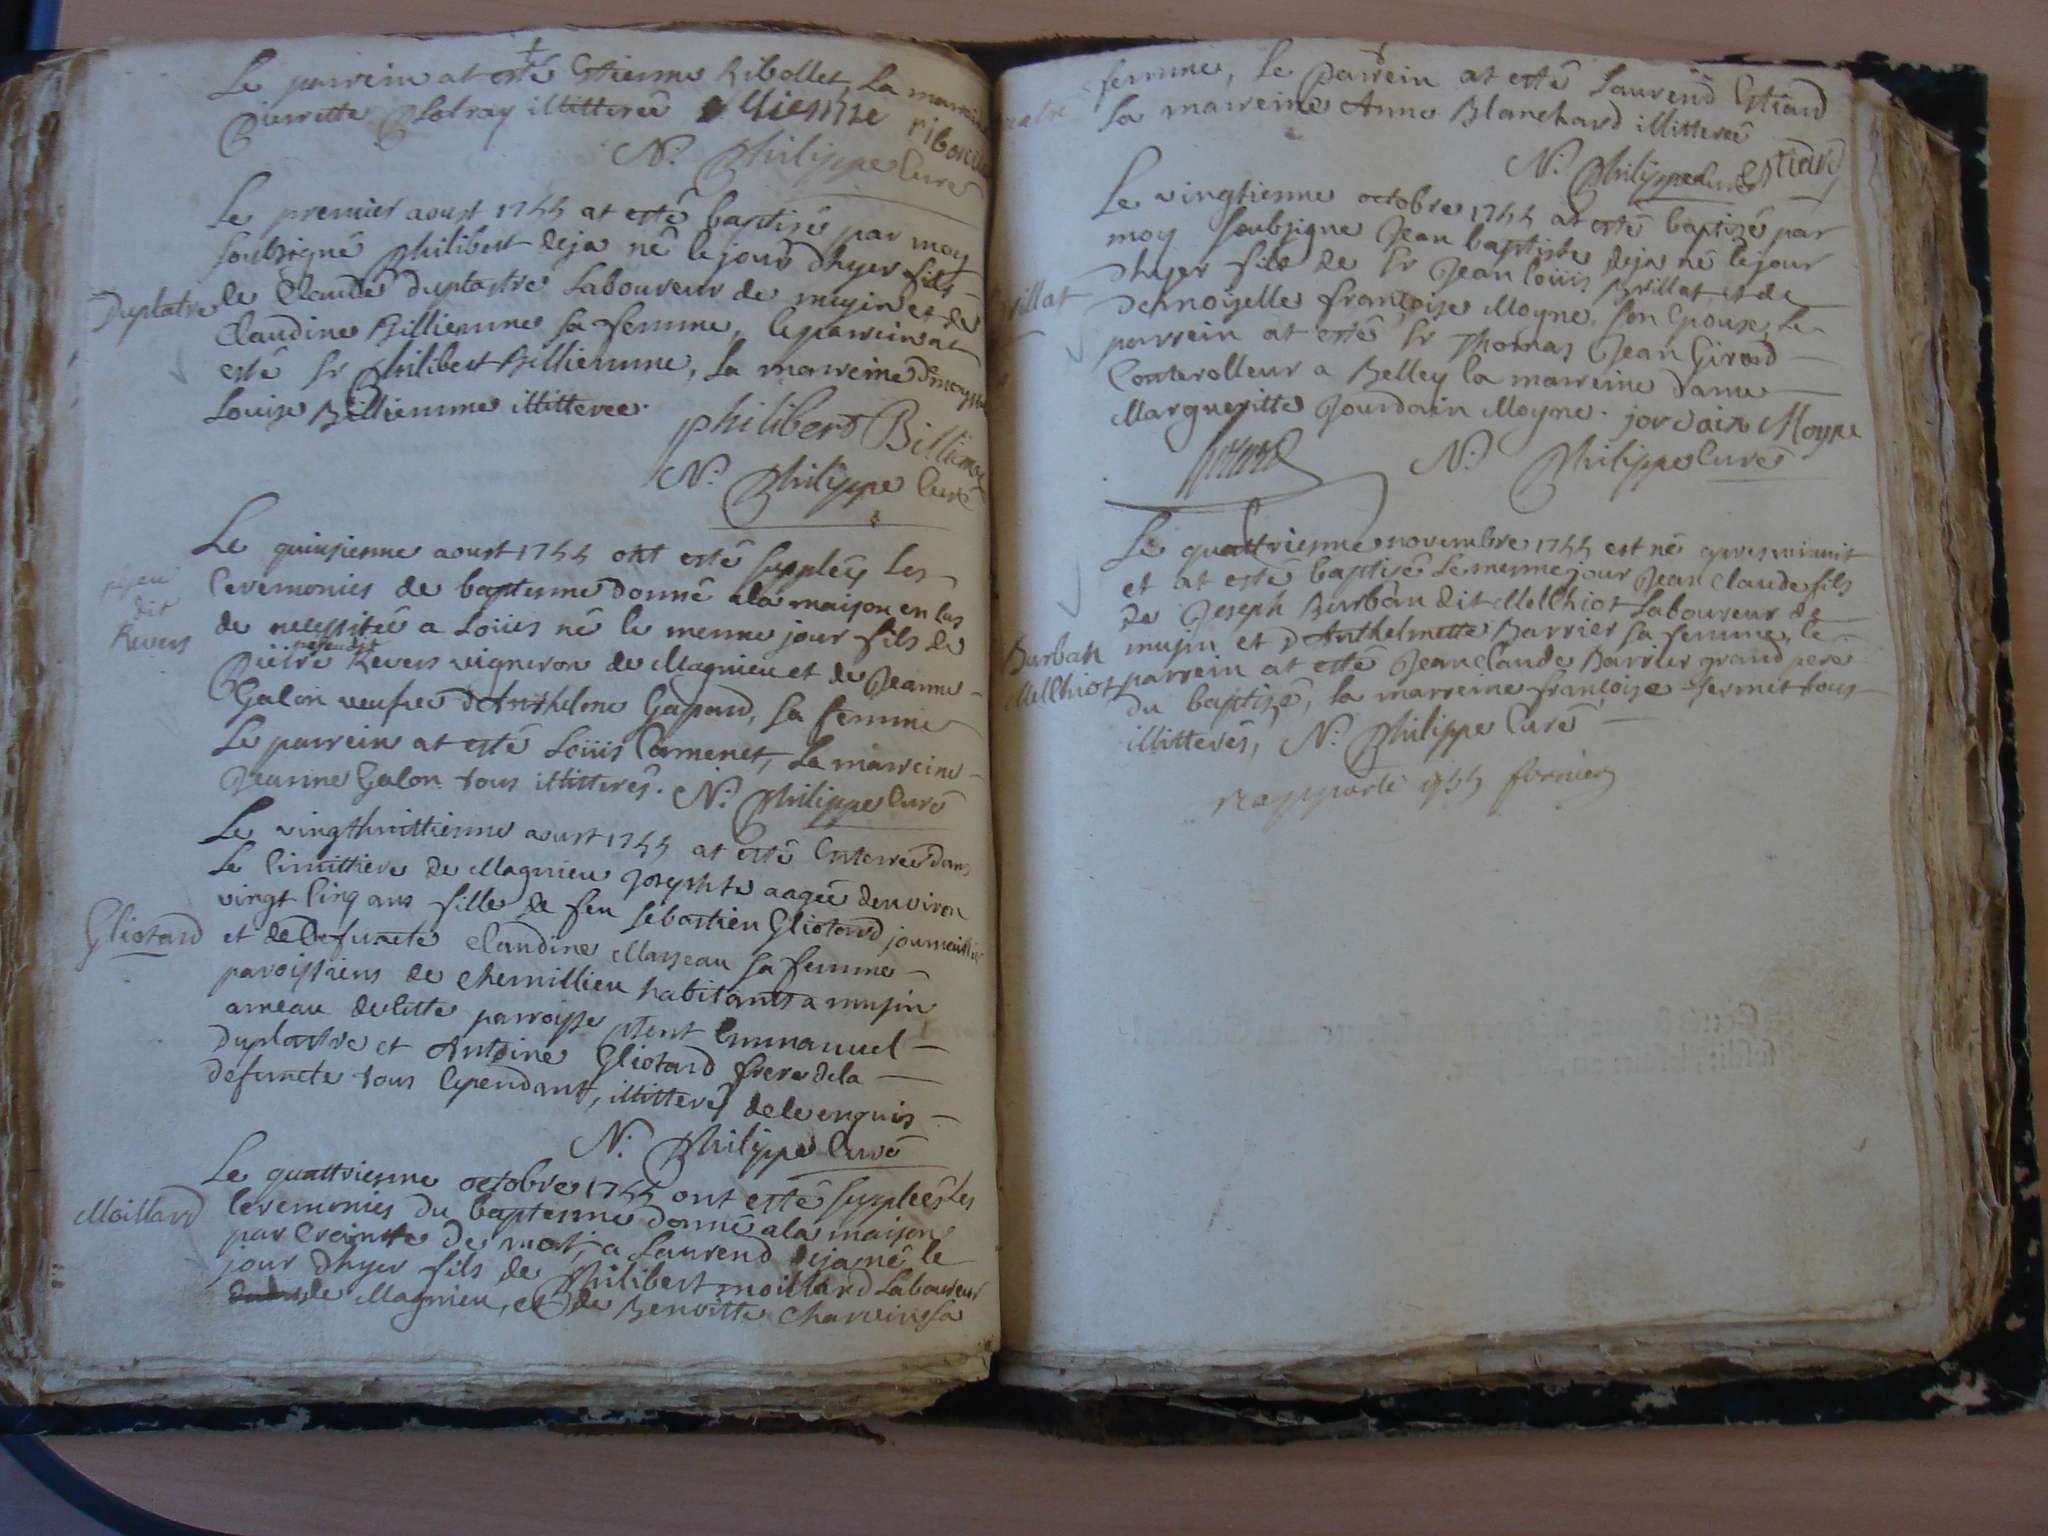 Le parrein at esté Estienne Ribollet, La marreine
Pierrette illitterée Etienne
N. Philippe Curé
Le premier aoust 1755 at esté baptisé par moy
soubsigné Philibert deja né le jour d'hyer fils
Duplatre
de Claude duplastre Laboureur de musin et de
Claudine Billiemme sa femme, le parrein at
esté Sr Philibert Billiemme, La marreine
Louise Billiemme illitteree.
philibert Billieme
N. Philippe Curé
Le quinsieme aoust 1755 ont esté supplées Les
Ceremonies de baptesme donné a la maison en Cas
dit
Revers
de necessitée a Loüis né le mesme jour fils de
Pierre Revers vigneron de Magnieu et de Jeanne
Galon veufve d'Anthelme Gapard, sa femme
Le parrein at esté Loüis Camenet, La marreine
Jeanne Galon tous illitterés. N. Philippe Curé
Le vingthuittieme aoust 1755 at esté Enterrée dans
Le Cimittiere de Magnieu Josephte aagée denviron
vingt Cinq ans fille de feu Sebastien Gliotard journaillier
Gliotard
et de Defuncte Claudine Marjeau sa femme
paroissiens de Chemillieu habitants a musin
ameau de Cette parroisse Emmanuel
Duplastre et Antoine Gliotard frere de la
defuncte tous illitterés de Ce enquis
N. Philippe Curé
Le quattrieme octobre 1755 ont esté supplées Les
Moillard
Ceremonies du baptesme donné a la maison
par Crainte de mort, a Laurend deja né le
jour d'hyer fils de Philibert moillard Laboureur
de Magnieu, et de Benoitte Charvin sa
femme, Le Parrein at esté Laurend Estiard
La marreine Anne Blanchard illitterée
N. Philippe Curé Estiard
Le vingtieme octobre 1755 at esté baptisé par
moy soubsigné Jean baptiste deja né le jour
d'hyer fils de Sr Jean Loüis Brillat, et de
Demoiselle françoise Moyne, son Epouse, Le
parrein at esté Sr Thomas Jean Girard
Conterolleur a Belley la marreine dame
Margueritte Jourdain Moyne. jordain Moyne
N. Philippe Curé
Le quattrieme novembre 1755 est né apres minuit
et at esté baptisé Le mesme jour Jean Claude fils
de Joseph Burban dit Melchiot Laboureur de
Burban
musin et d'Anthelmette Barrier sa femme, le
Melchiot
parrein at esté Jean Claude Barrier grand pere
du baptisé, la marreine françoise fermet tous
illitterés, N. Philippe Curé
rapporté 1755